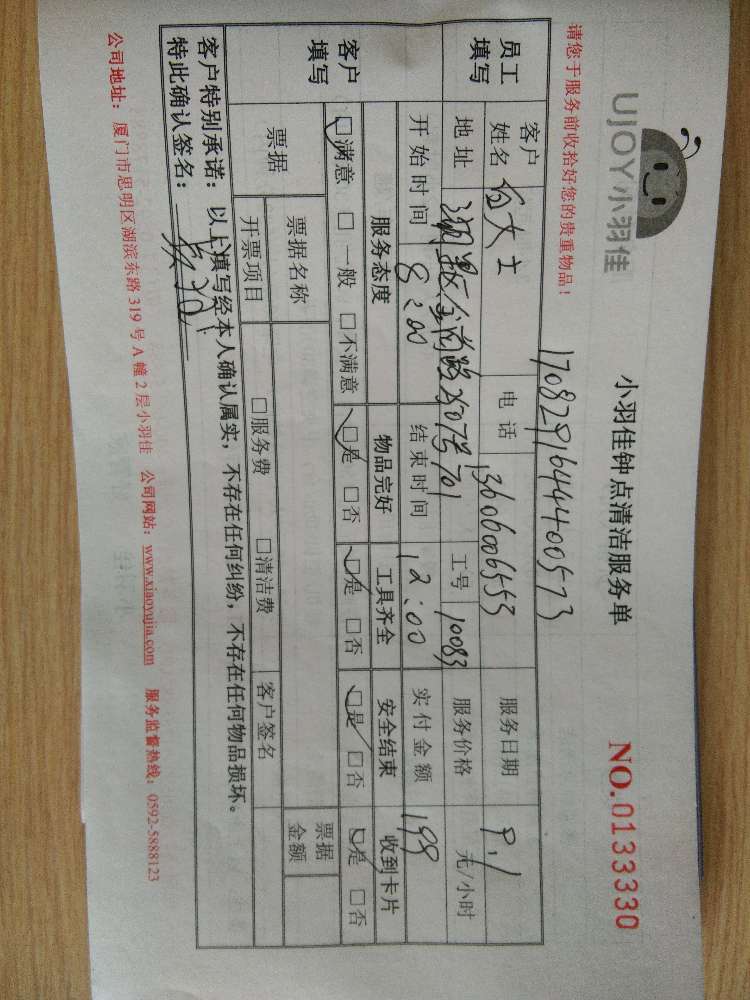 UJOY小羽佳
小羽佳钟点清洁服务单
NO.0133330
请您于服务前收拾好您的贵重物品！
1708291644400573
员工填写 客户姓名 白女士 电话 13606006553 服务日期 9.1
地址 湖里区金尚路 701 工号 10083 服务价格 元/小时
开始时间 8:00 结束时间 12:00 实付金额 199
客户填写 服务态度 物品完好 工具齐全 安全结束 收到卡片
☑满意 □一般 □不满意 ☑是 □否 ☑是 □否 ☑是 □否 ☑是 □否
票据 票据名称 票据金额
开票项目 □服务费 □清洁费 客户签名
客户特别承诺：以上填写经本人确认属实，不存在任何纠纷，不存在任何物品损坏。
特此确认签名：
公司地址：厦门市思明区湖滨东路 319 号 A 幢 2 层小羽佳 公司网站：www.xiaoyujia.com 服务监督热线：0592-5888123